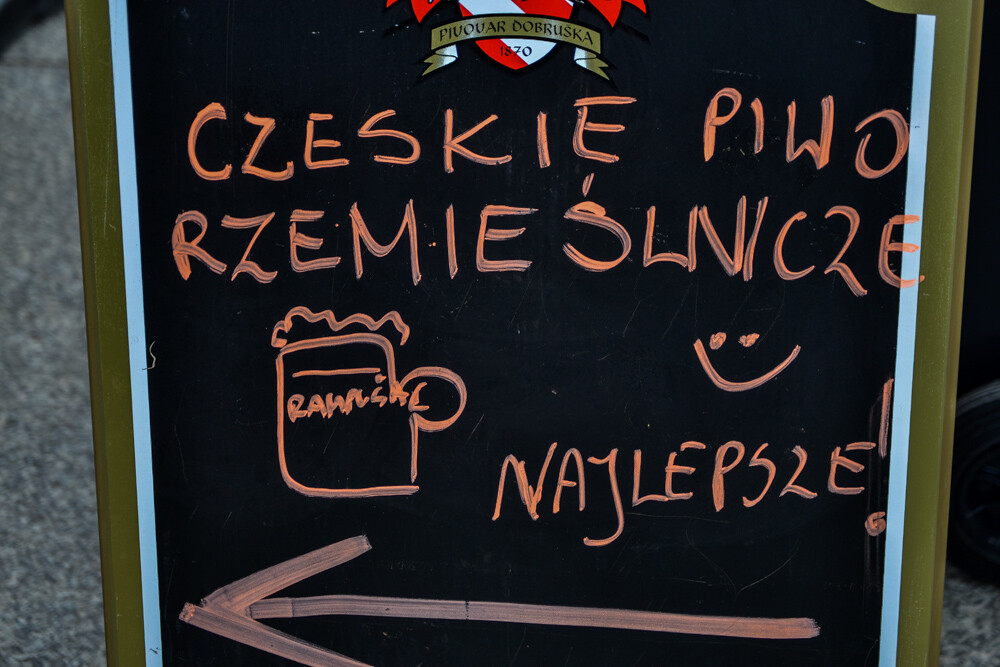 PIVOVAR DOBRUŠKA
1870
CZESKIE PIWO
RZEMIEŚLNICZE
NAJLEPSZE!